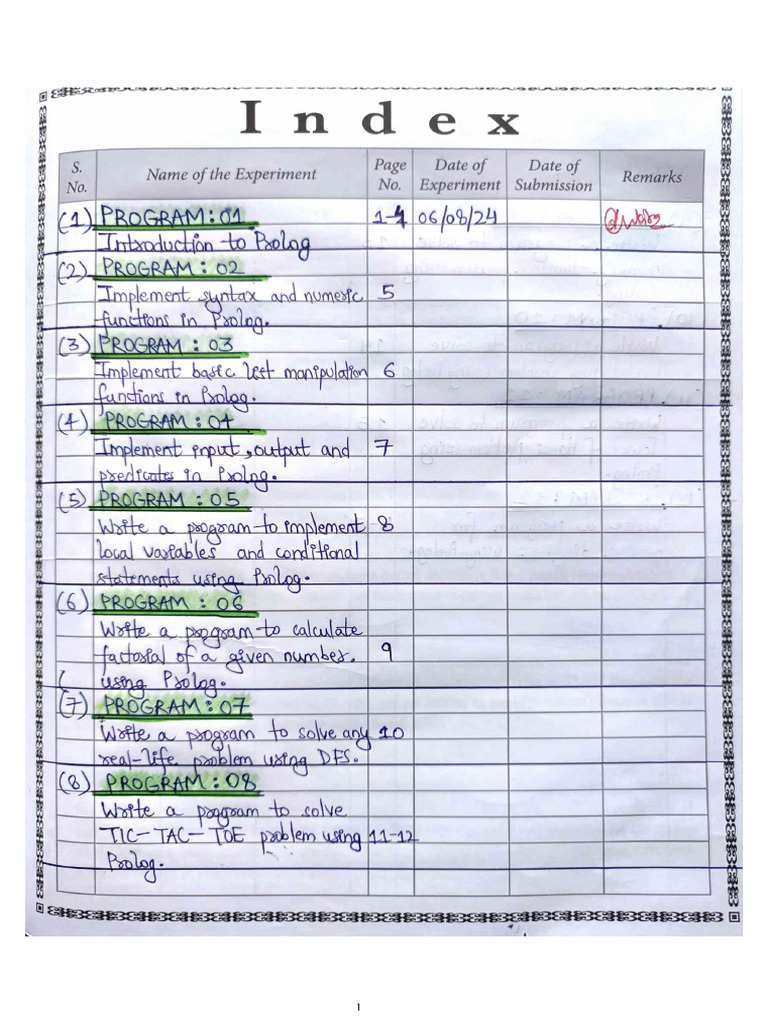 Index
S. No. Name of the Experiment Page No. Date of Experiment Date of Submission Remarks
(1) PROGRAM:01 1-4 06/08/24
Introduction to Prolog
(2) PROGRAM: 02
Implement syntax and numeric 5
functions in Prolog.
(3) PROGRAM : 03
Implement basic list manipulation 6
functions in Prolog.
(4) PROGRAM: 04
Implement input, output and 7
predicates in Prolog.
(5) PROGRAM : 05
Write a program to implement 8
local variables and conditional
statements using Prolog.
(6) PROGRAM : 06
Write a program to calculate
factorial of a given number. 9
( using Prolog.
(7) PROGRAM: 07
Write a program to solve any 10
real-life problem using DFS.
(8) PROGRAM: 08
Write a program to solve
TIC-TAC-TOE problem using 11-12
Prolog.
1